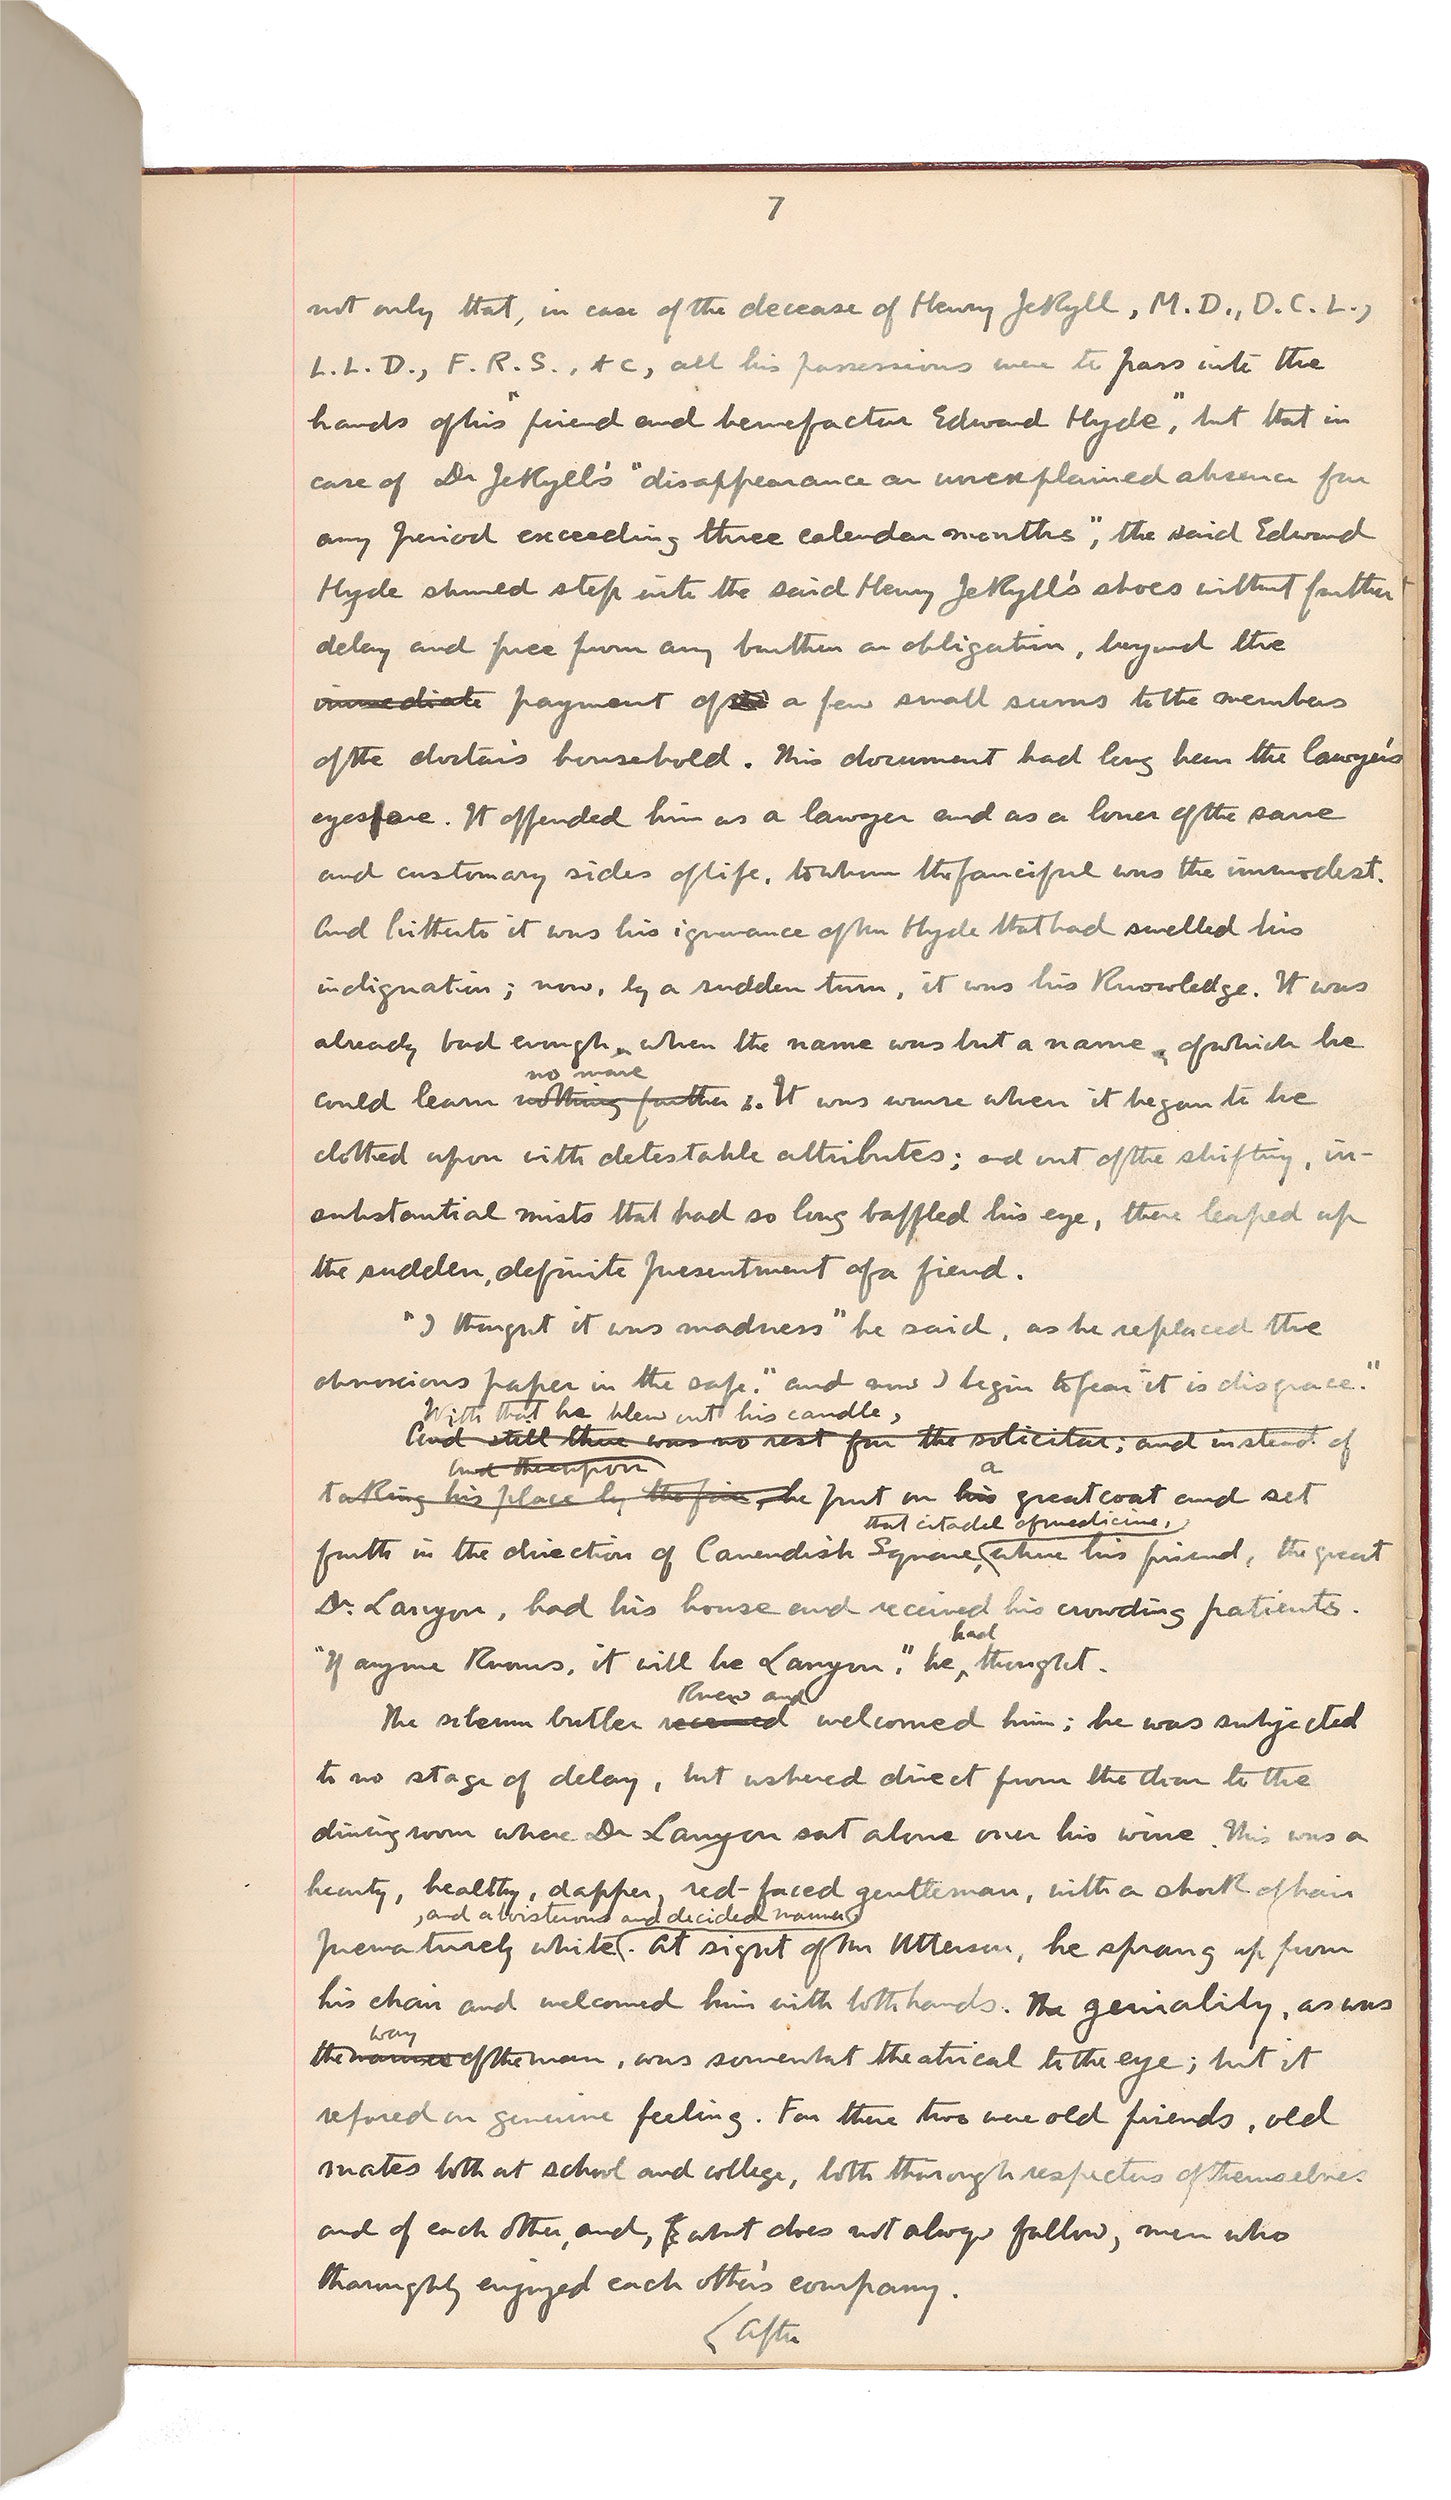 7
not only that, in case of the decease of Henry Jekyll, M.D., D.C.L.,
L.L.D., F.R.S., &c, all his possessions were to pass into the
hands of his "friend and benefactor Edward Hyde", but that in
case of Dr Jekyll's "disappearance or unexplained absence for
any period exceeding three calendar months", the said Edward
Hyde should step into the said Henry Jekyll's shoes without further
delay and free from any burthen or obligation, beyond the
immediate payment of a few small sums to the members
of the doctor's household. This document had long been the lawyer's
eyesore. It offended him as a lawyer and as a lover of the sane
and customary sides of life, to whom the fanciful was the immodest.
And hitherto it was his ignorance of Mr Hyde that had swelled his
indignation; now, by a sudden turn, it was his knowledge. It was
already bad enough, when the name was but a name, of which he
no more
could learn nothing further. It was worse when it began to be
clothed upon with detestable attributes; and out of the shifting, in-
substantial mists that had so long baffled his eye, there leaped up
the sudden, definite presentment of a fiend.
"I thought it was madness" he said, as he replaced the
obnoxious paper in the safe, "and now I begin to fear it is disgrace."
With that he blew out his candle,
And still there was no rest for the solicitor; and instead of
And thereupon
a
taking his place by the fire, he put on his greatcoat and set
that citadel of medicine,
forth in the direction of Cavendish Square, where his friend, the great
Dr. Lanyon, had his house and received his crowding patients.
had
"If anyone knows, it will be Lanyon," he thought.
knew and
The solemn butler received welcomed him; he was subjected
to no stage of delay, but ushered direct from the door to the
dining room where Dr Lanyon sat alone over his wine. This was a
hearty, healthy, dapper, red-faced gentleman, with a shock of hair
, and a boisterous and decided manner
prematurely white. At sight of Mr Utterson, he sprang up from
his chair and welcomed him with both hands. The geniality, as was
way
the manner of the man, was somewhat theatrical to the eye; but it
reposed on genuine feeling. For these two were old friends, old
mates both at school and college, both thorough respecters of themselves
and of each other, and, what does not always follow, men who
thoroughly enjoyed each other's company.
After